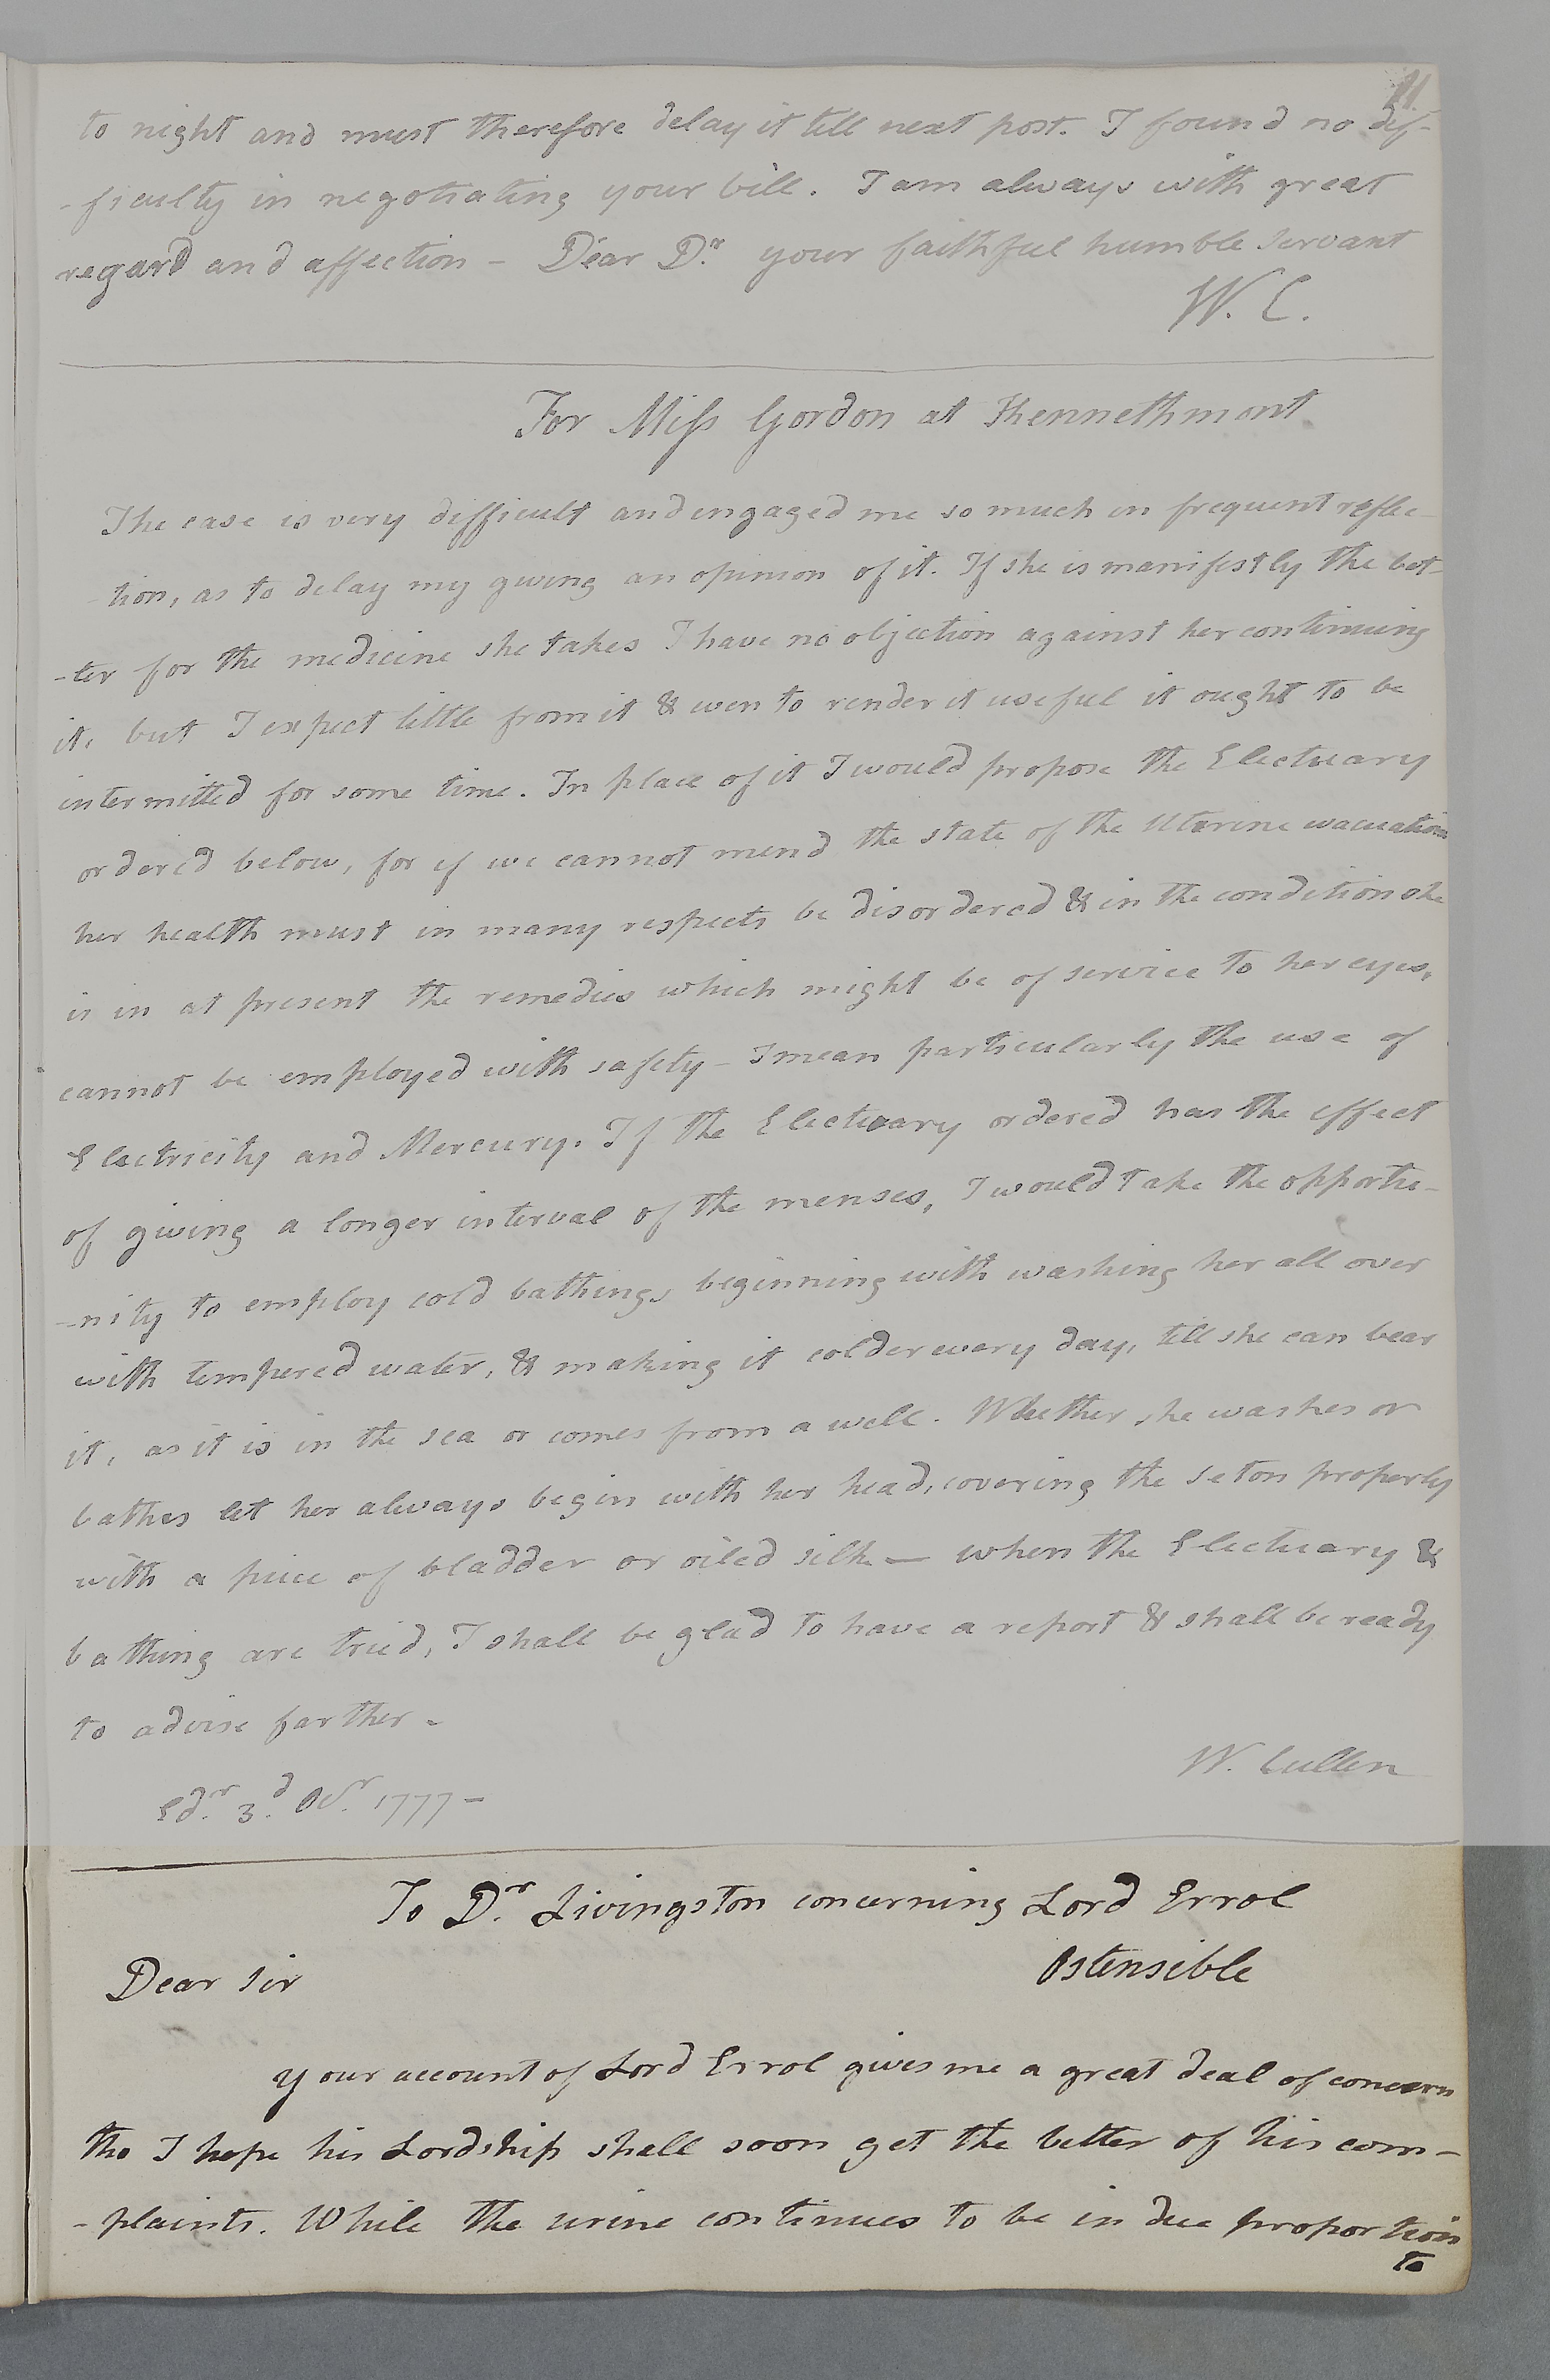 11
to night and must therefore delay it till next post. I found no dif-
-ficulty in negotiating your bill. I am always with great
regard and affection - Dear Dr. your faithful humble servant
W. C.
For Miss Gordon at Khennethmont
The case is very difficult and engaged me so much in frequent reflec-
-tion, as to delay my giving an opinion of it. If she is manifestly the bet-
-ter for the medicine she takes I have no objection against her continuing
it, but I expect little from it & even to render it useful it ought to be
intermitted for some time. In place of it I would propose the Electuary
ordered below, for if we cannot mend the state of the Uterine evacuation
her health must in many respects be disordered & in the condition she
is in at present the remedies which might be of service to her eyes,
cannot be employed with safety - I mean particularly the use of
Electricity and Mercury. If the Electuary ordered has the effect
of giving a longer interval of the menses, I would take the opportu-
-nity to employ cold bathing, beginning with washing her all over
with tempered water, & making it colder every day, till she can bear
it, as it is in the sea or comes from a well. Whether she washes or
bathes let her always begin with her head, covering the seton properly
with a piece of bladder or oiled silk — when the Electuary &
bathing are tried, I shall be glad to have a report & shall be ready
to advise farther -
W. Cullen
Edr. 3d. Octr. 1777 -
To Dr. Livingston concerning Lord Errol
Ostensible
Dear Sir
your account of Lord Errol gives me a great deal of concern
tho I hope his Lordship shall soon get the better of his com-
-plaints. While the urine continues to be in due proportion
to